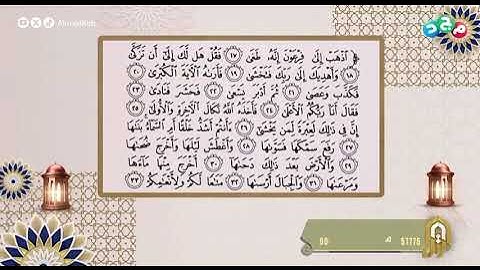 AlmajdKids
مجد
﴿ اذْهَبْ إِلَىٰ فِرْعَوْنَ إِنَّهُ طَغَىٰ ١٧ فَقُلْ هَل لَّكَ إِلَىٰ أَن تَزَكَّىٰ
١٨ وَأَهْدِيَكَ إِلَىٰ رَبِّكَ فَتَخْشَىٰ ١٩ فَأَرَاهُ الْآيَةَ الْكُبْرَىٰ ٢٠
فَكَذَّبَ وَعَصَىٰ ٢١ ثُمَّ أَدْبَرَ يَسْعَىٰ ٢٢ فَحَشَرَ فَنَادَىٰ ٢٣
فَقَالَ أَنَا رَبُّكُمُ الْأَعْلَىٰ ٢٤ فَأَخَذَهُ اللَّهُ نَكَالَ الْآخِرَةِ وَالْأُولَىٰ ٢٥
إِنَّ فِي ذَٰلِكَ لَعِبْرَةً لِّمَن يَخْشَىٰ ٢٦ ءَأَنتُمْ أَشَدُّ خَلْقًا أَمِ السَّمَاءُ بَنَاهَا
٢٧ رَفَعَ سَمْكَهَا فَسَوَّاهَا ٢٨ وَأَغْطَشَ لَيْلَهَا وَأَخْرَجَ ضُحَاهَا
٢٩ وَالْأَرْضَ بَعْدَ ذَٰلِكَ دَحَاهَا ٣٠ أَخْرَجَ مِنْهَا مَاءَهَا
وَمَرْعَاهَا ٣١ وَالْجِبَالَ أَرْسَاهَا ٣٢ مَتَاعًا لَّكُمْ وَلِأَنْعَامِكُمْ ٣٣
51775